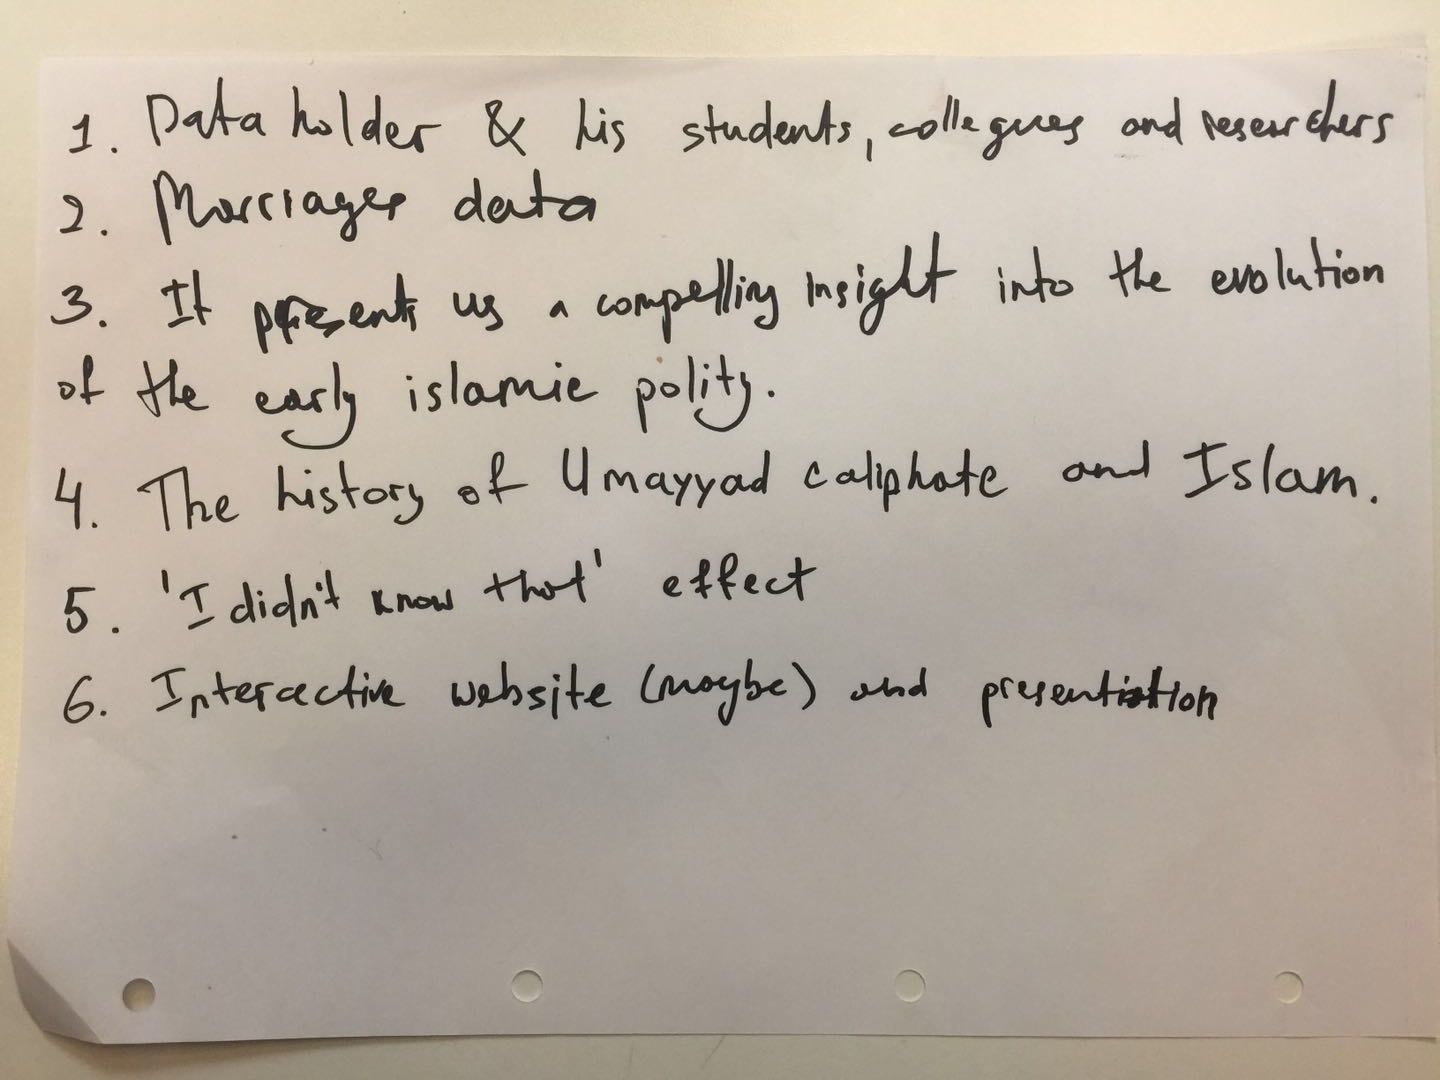 1. Data holder & his students, collegues and researchers
2. Marriages data
3. It presents us a compelling insight into the evolution
of the early islamic polity.
4. The history of Umayyad caliphate and Islam.
5. 'I didn't know that' effect
6. Interactive website (maybe) and presentation